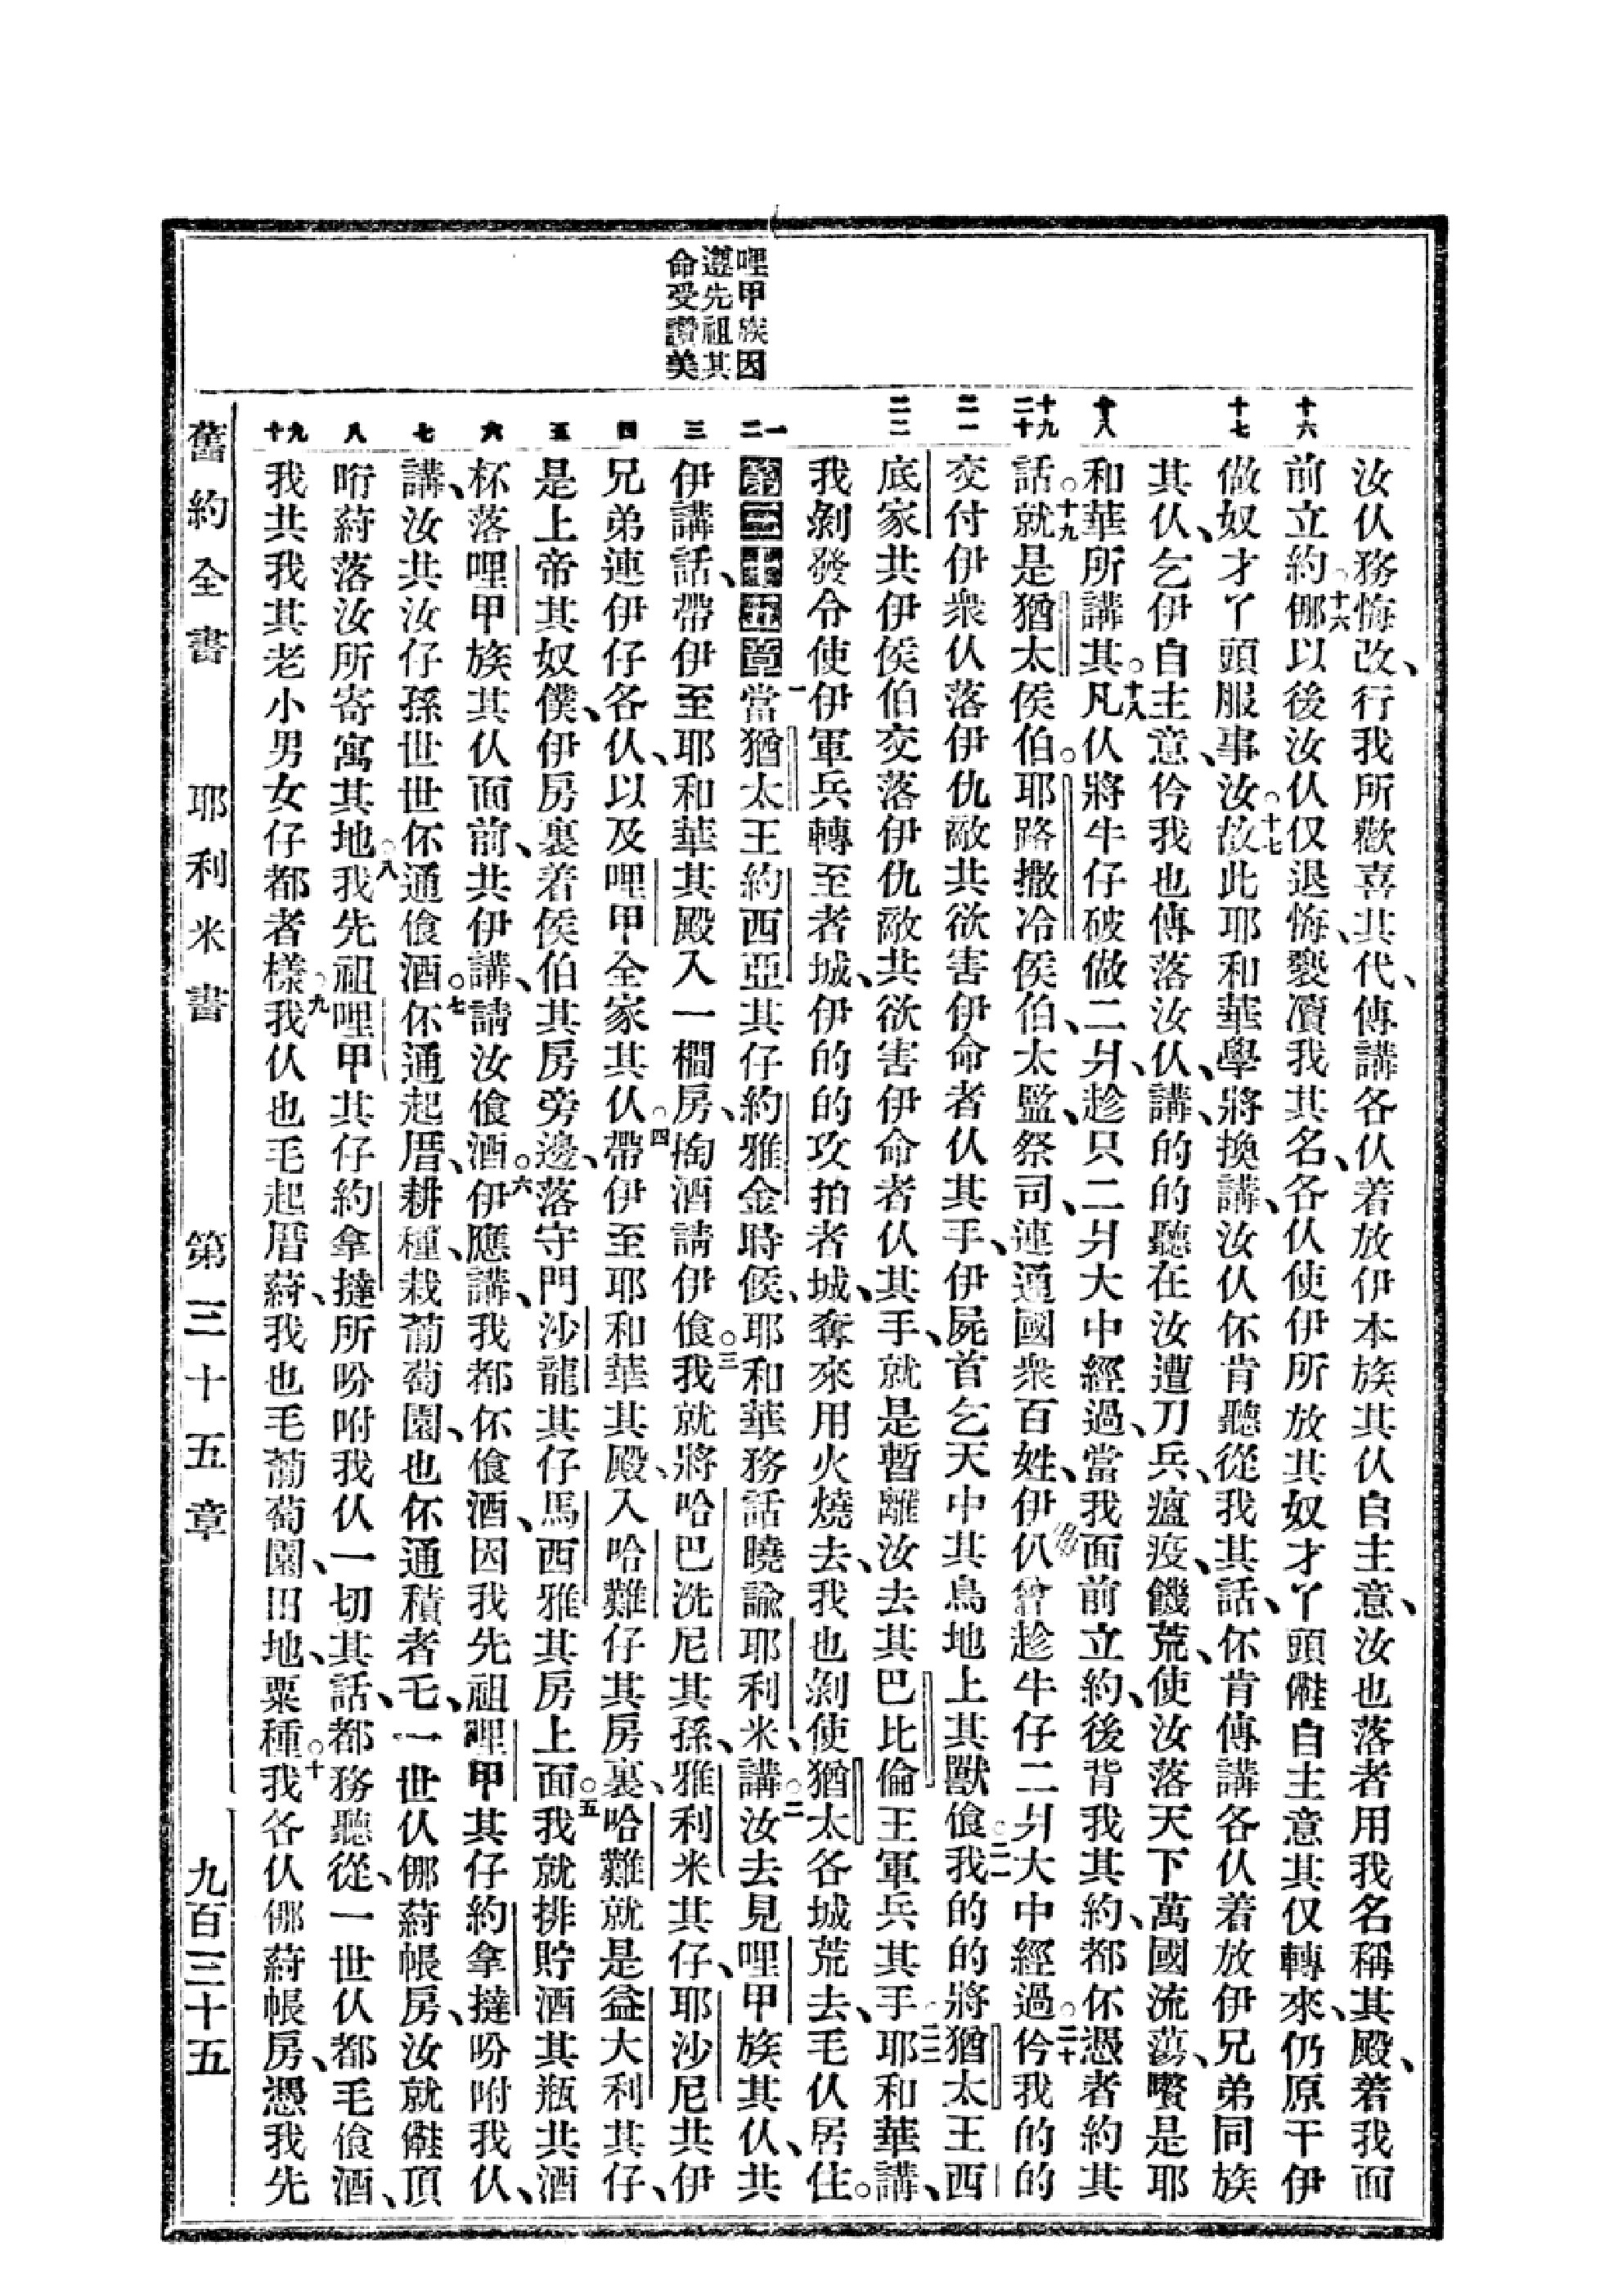 哩甲族因
遵先祖其
命受讚美
十六
十七
十八
十九
二十
二一
二二
一
二
三
四
五
六
七
八
九
十
汝仈務悔改、行我所歡喜其代、傳講各仈着放伊本族其仈自主意、汝也落者用我名稱其殿、着我面
前立約○十六㑚以後汝仈仅退悔、褻瀆我其名、各仈使伊所放其奴才丫頭儺自主意其仅轉來、仍原干伊
做奴才丫頭服事汝○十七故此耶和華學將換講、汝仈伓肯聽從我其話、伓肯傳講各仈着放伊兄弟同族
其仈、乞伊自主意、仱我也傳落汝仈、講、的的聽在汝遭刀兵、瘟疫、饑荒、使汝落天下萬國流蕩、嚽是耶
和華所講其○十八凡仈將牛仔破做二爿、趁只二爿大中經過、當我面前立約、後背我其約、都伓憑者約其
話○十九就是猶太侯伯○耶路撒冷侯伯、太監、祭司、連通國衆百姓、伊仈曾趁牛仔二爿大中經過○二十仱我的的
交付伊衆仈落伊仇敵共欲害伊命者仈其手、伊屍首乞天中其鳥地上其獸飡○二一我的的將猶太王西
底家共伊侯伯交落伊仇敵、共欲害伊命者仈其手、就是暫離汝去其巴比倫王軍兵其手○二二耶和華講、
我剝發令使伊軍兵轉至者城、伊的的攻拍者城、奪來用火燒去、我也剝使猶太各城荒去、毛仈居住○
第三十五章 一當猶太王約西亞其仔約雅金時候、耶和華務話曉諭耶利米、講○二汝去見哩甲族其仈、共
伊講話、帶伊至耶和華其殿入一櫊房、掏酒請伊飡○三我就將哈巴洗尼其孫、雅利米其仔、耶沙尼共伊
兄弟連伊仔各仈、以及哩甲全家其仈○四帶伊至耶和華其殿、入哈難仔其房裏、哈難就是益大利其仔、
是上帝其奴僕、伊房裏着侯伯其房旁邊、落守門沙龍其仔馬西雅其房上面○五我就排貯酒其瓶共酒
杯落哩甲族其仈面前、共伊講、請汝飡酒○六伊應講、我都伓飡酒、因我先祖哩甲其仔約拿撻吩咐我仈、
講、汝共汝仔孫世世伓通飡酒○七伓通起厝、耕種、栽葡萄園、也伓通積者乇、一世仈㑚蒔帳房、汝就儺頂
晧蒔落汝所寄寓其地○八我先祖哩甲其仔約拿撻所吩咐我仈一切其話、都務聽從、一世仈都毛飡酒、
我共我其老小男女仔都者樣○九我仈也毛起厝蒔、我也毛葡萄園、田地、粟種○十我各仈㑚蒔帳房、憑我先
舊約全書 耶利米書 第三十五章 九百三十五